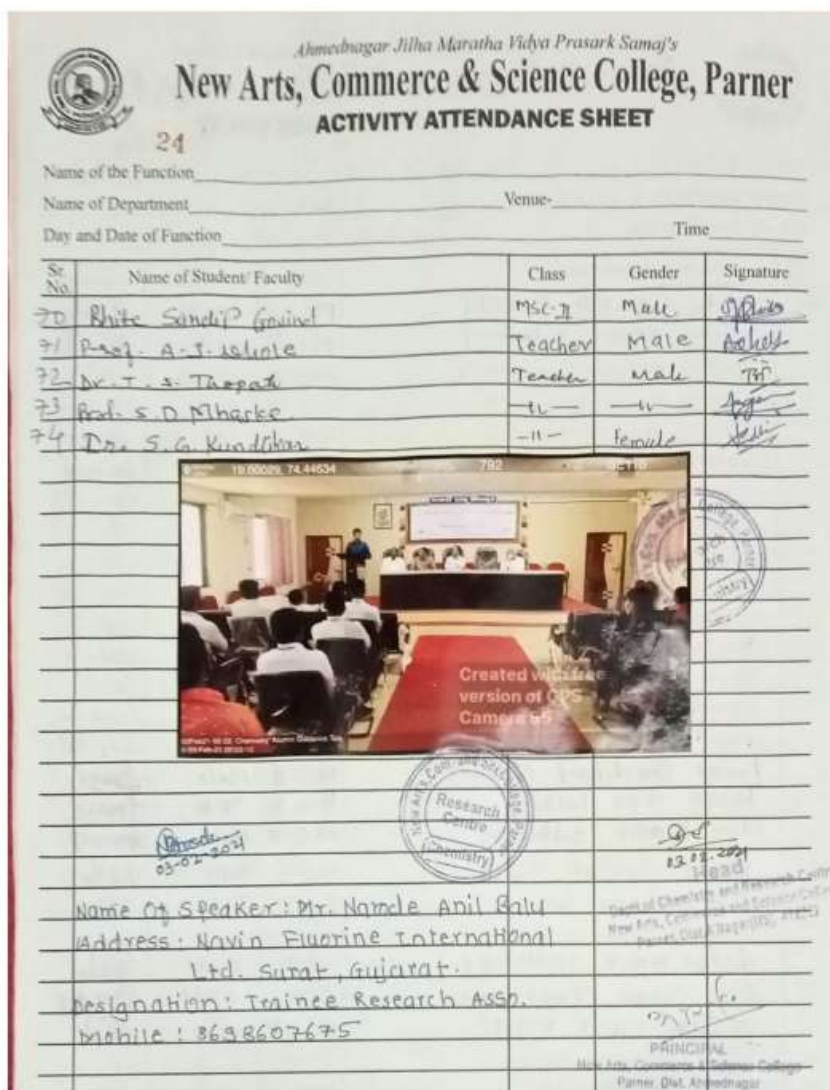 Ahmednagar Jilha Maratha Vidya Prasark Samaj's
New Arts, Commerce & Science College, Parner
ACTIVITY ATTENDANCE SHEET
24
Name of the Function
Name of Department Venue-
Day and Date of Function Time
Sr. No. Name of Student/ Faculty Class Gender Signature
70 Rhite Sandip Govind MSC-II Male
71 Prof. A. J. Male Teacher
72 Dr. T. S. Teacher Male
73 Prof. S. D Mharke -11- -11-
74 Dr. S. G. -11- Female
19.00029, 74.44534 792
Created with free
version of GPS
Camera 55
New Arts, Com. and Sci. College, Parner
Research
Centre
(Chemistry)
03-02-2021
03.02.2021
Head
Dept of Chemistry and Research Centre
New Arts, Commerce and Science College
Name Of Speaker: Mr. Namde Anil Balu
Address: Navin Fluorine International
Ltd. Surat, Gujarat.
Designation: Trainee Research Asso.
Mobile: 8698607675
PRINCIPAL
New Arts, Commerce & Science College
Parner, Dist. Ahmednagar